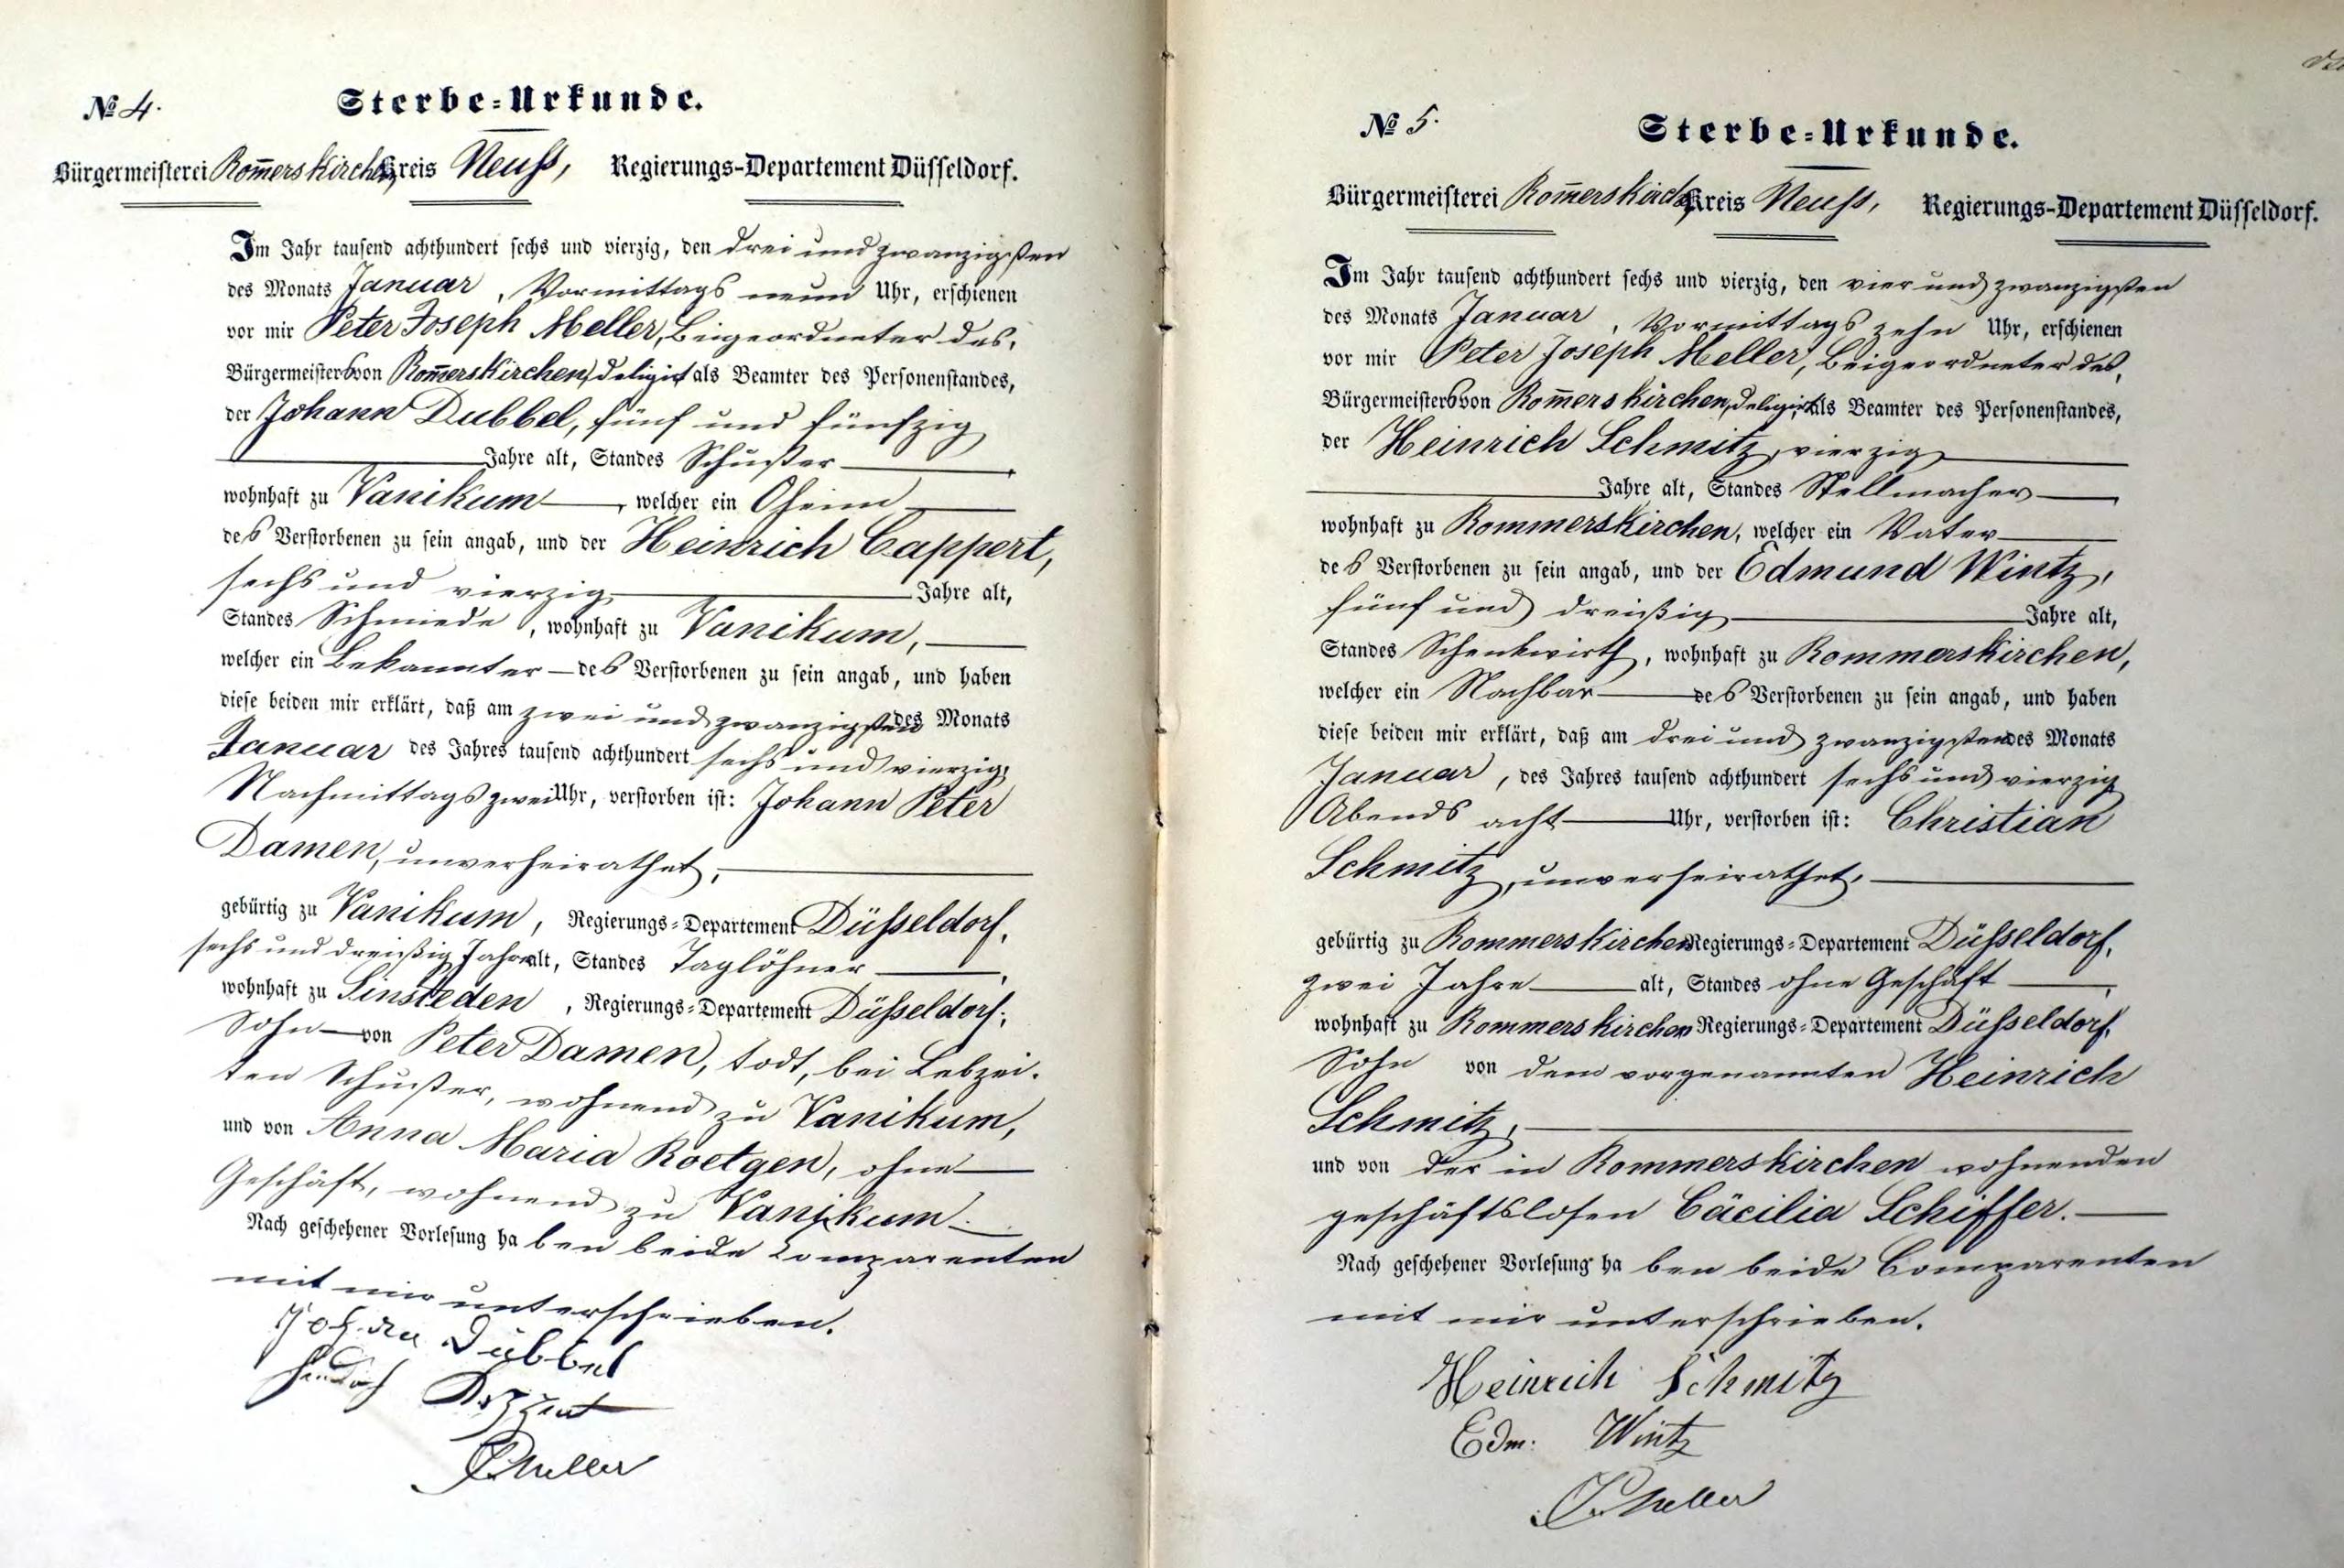 № 4.
Sterbe-Urkunde.
Bürgermeisterei Rom̄erskirchen, Kreis Neuß, Regierungs-Departement Düsseldorf.
Im Jahr tausend achthundert sechs und vierzig, den drei und zwanzigsten
des Monats Januar, Vormittags neun Uhr, erschienen
vor mir Peter Joseph Meller, Beigeordneter des
Bürgermeisters von Rom̄erskirchen, deligirt als Beamter des Personenstandes,
der Johann Dubbel, fünf und fünfzig
Jahre alt, Standes Schuster
wohnhaft zu Vanikum, welcher ein Oheim
des Verstorbenen zu sein angab, und der Heinrich Cappert,
sechs und vierzig Jahre alt,
Standes Schmiede, wohnhaft zu Vanikum,
welcher ein Bekannter des Verstorbenen zu sein angab, und haben
diese beiden mir erklärt, daß am zwei und zwanzigsten des Monats
Januar des Jahres tausend achthundert sechs und vierzig,
Nachmittags zwei Uhr, verstorben ist: Johann Peter
Damen, unverheirathet,
gebürtig zu Vanikum, Regierungs-Departement Düsseldorf,
sechs und dreißig Jahre alt, Standes Taglöhner,
wohnhaft zu Sinsteden, Regierungs-Departement Düsseldorf,
Sohn von Peter Damen, todt, bei Lebzei-
ten Schuster, wohnend zu Vanikum,
und von Anna Maria Roetgen, ohne
Geschäft, wohnend zu Vanikum.
Nach geschehener Vorlesung haben beide Comparenten
mit mir unterschrieben.
Johann Dübbel
Meller
№ 5.
Sterbe-Urkunde.
Bürgermeisterei Rom̄erskirchen, Kreis Neuß, Regierungs-Departement Düsseldorf.
Im Jahr tausend achthundert sechs und vierzig, den vier und zwanzigsten
des Monats Januar, Vormittags zehn Uhr, erschienen
vor mir Peter Joseph Meller, Beigeordneter des
Bürgermeisters von Rom̄erskirchen, deligirt als Beamter des Personenstandes,
der Heinrich Schmitz, vierzig
Jahre alt, Standes Stellmacher,
wohnhaft zu Rommerskirchen, welcher ein Vater
des Verstorbenen zu sein angab, und der Edmund Wintz,
fünf und dreißig Jahre alt,
Standes Schenkwirth, wohnhaft zu Rommerskirchen,
welcher ein Nachbar des Verstorbenen zu sein angab, und haben
diese beiden mir erklärt, daß am drei und zwanzigsten des Monats
Januar, des Jahres tausend achthundert sechs und vierzig
Abends acht Uhr, verstorben ist: Christian
Schmitz, unverheirathet,
gebürtig zu Rommerskirchen Regierungs-Departement Düsseldorf,
zwei Jahre alt, Standes ohne Geschäft,
wohnhaft zu Rommerskirchen Regierungs-Departement Düsseldorf,
Sohn von dem vorgenannten Heinrich
Schmitz,
und von der in Rommerskirchen wohnenden
geschäftslosen Cäcilia Schiffer.
Nach geschehener Vorlesung haben beide Comparenten
mit mir unterschrieben.
Heinrich Schmitz
Edm: Wintz
Meller